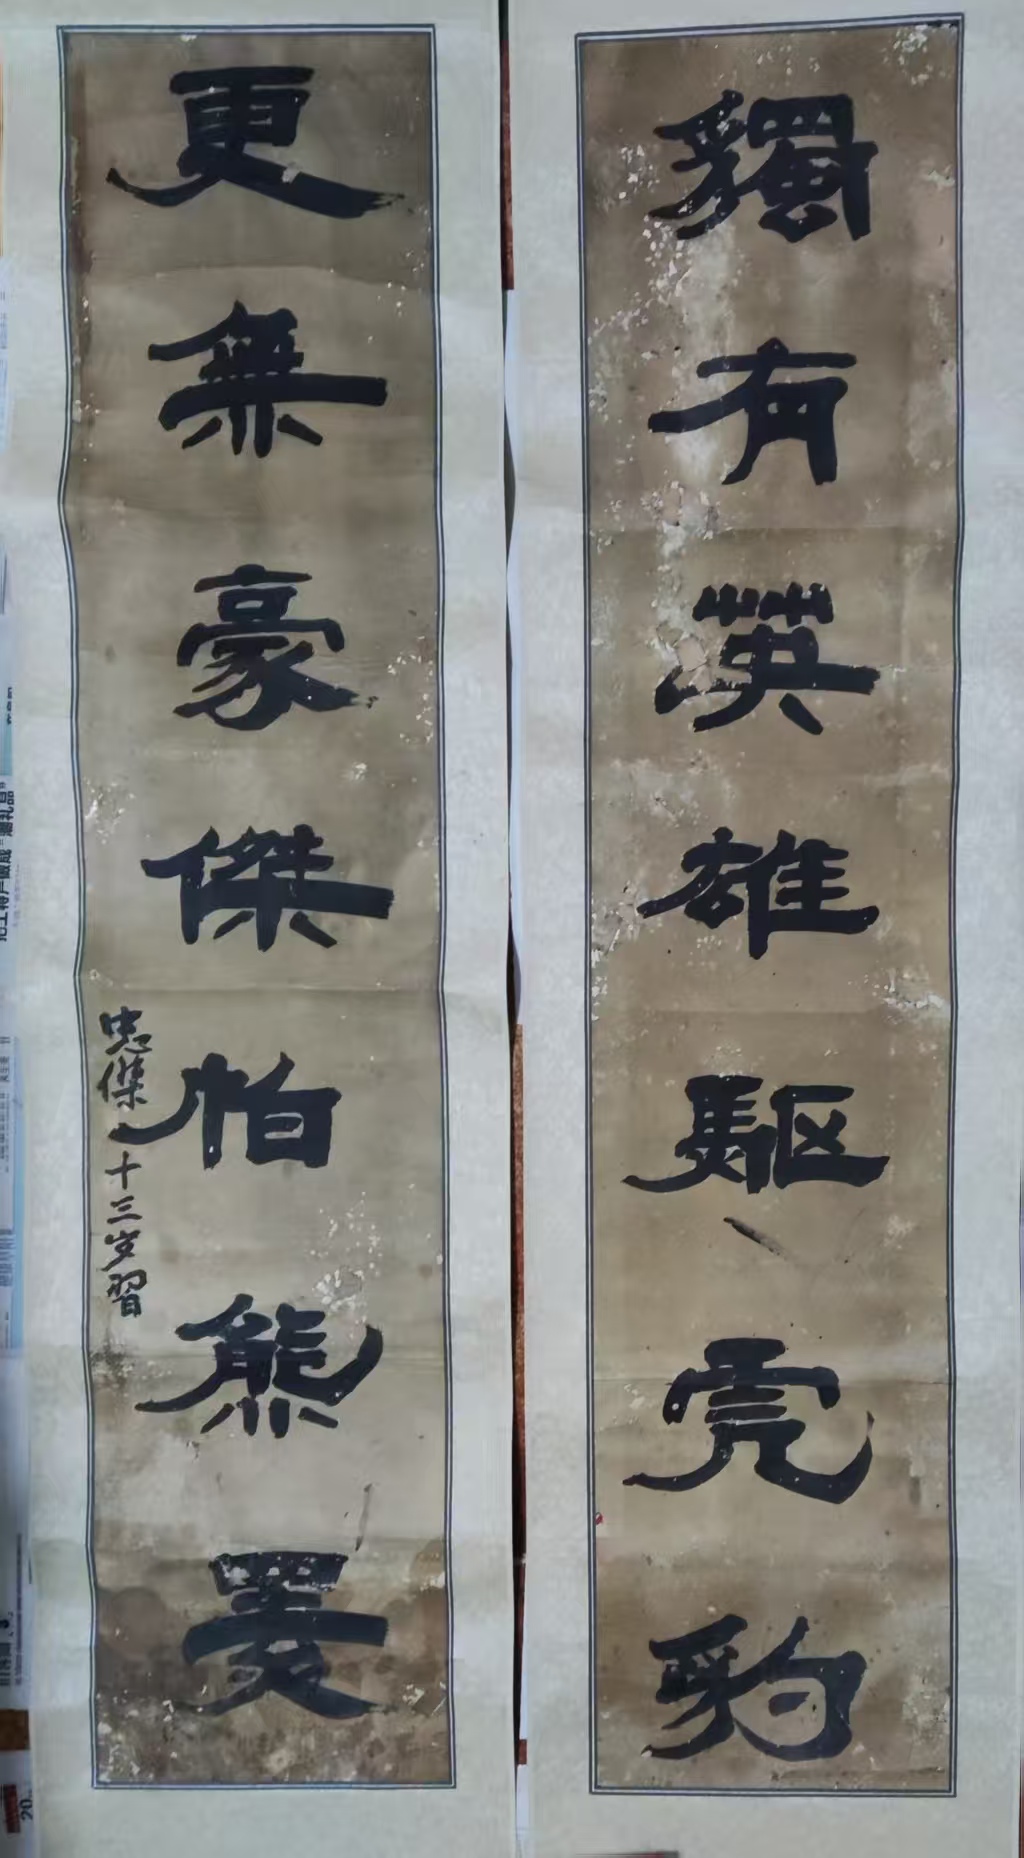 獨有英雄驅虎豹
更無豪傑怕熊羆
忠傑十三岁習